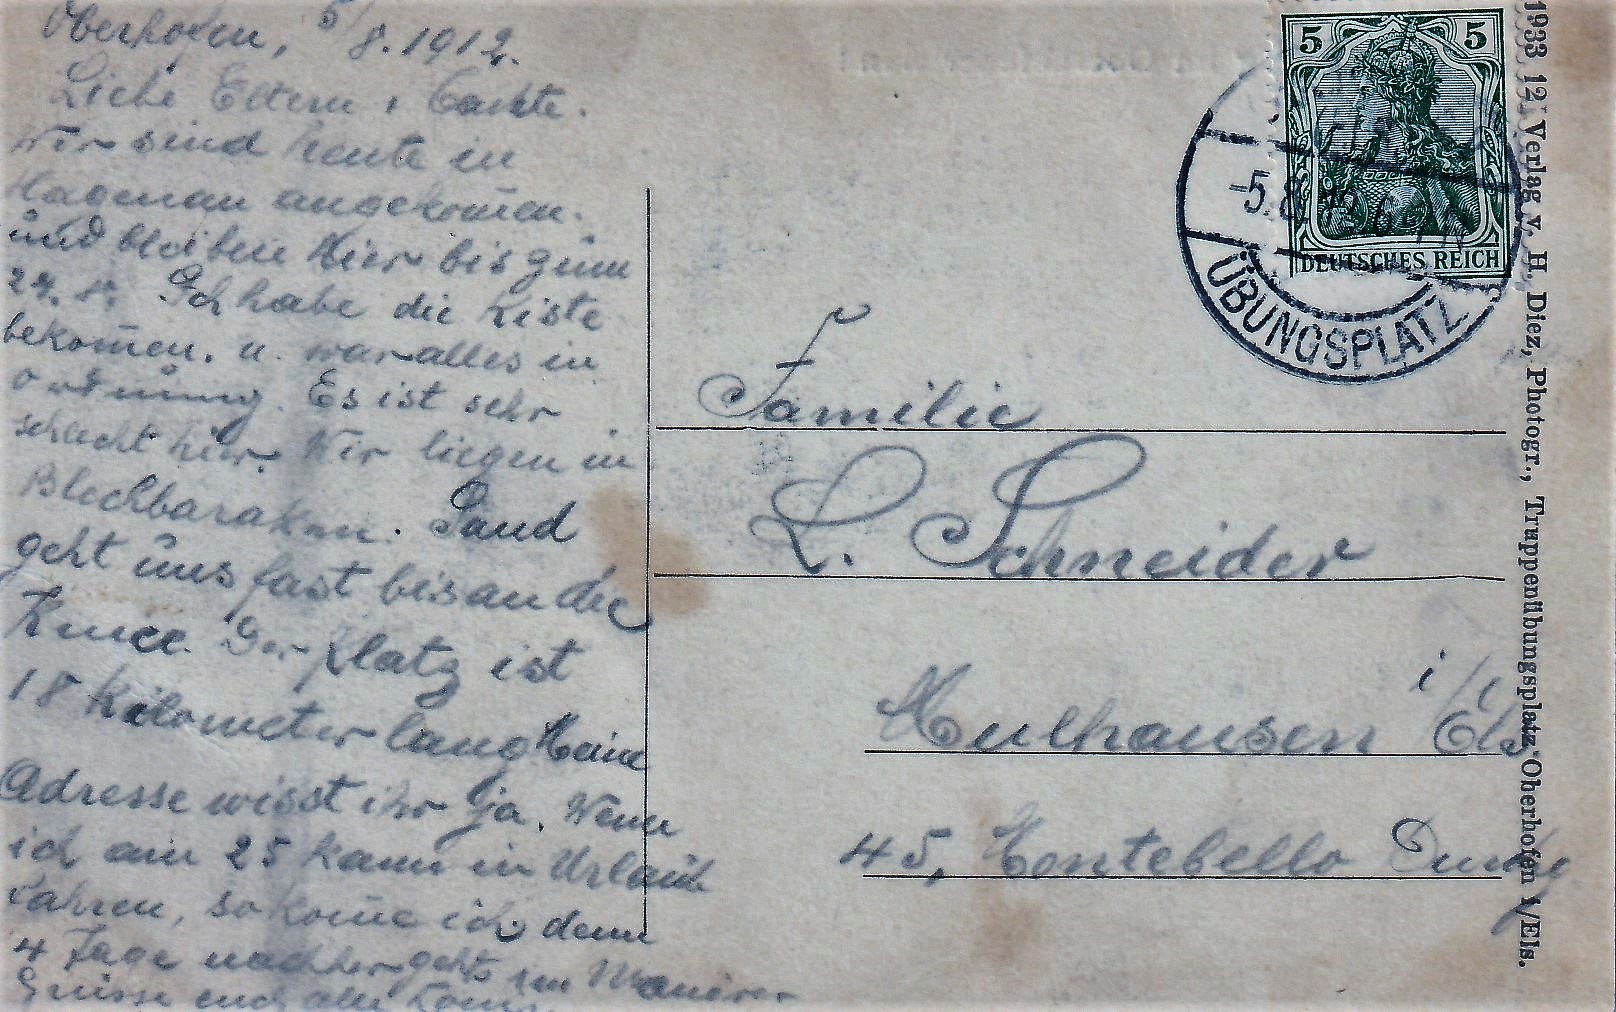 Oberhofen, 5/8. 1912.
Liebe Eltern
Wir sind heute in
Hagenau angekom̄en.
und bleiben hier bis zum
Ich habe die Kiste
bekom̄en. u. war alles in
ordnung. Es ist sehr
schlecht hier. Wir liegen in
Blechbaraken. Sand
geht uns fast bis an die
Kniee. Der Platz ist
18 Kilometer lang Meine
Adresse wisst ihr ja. Wenn
ich am 25 kann in Urlaub
fahren, so kom̄e ich denn
4 Tage nachher gehts im Manöver
Grüsse euch alle
5 5
DEUTSCHES REICH
-5.8.12
ÜBUNGSPLATZ
Familie
L. Schneider
Mulhausen i/Els
45, Montebello
1933 12 Verlag v. H. Diez, Photogr., Truppenübungsplatz Oberhofen i/Els.